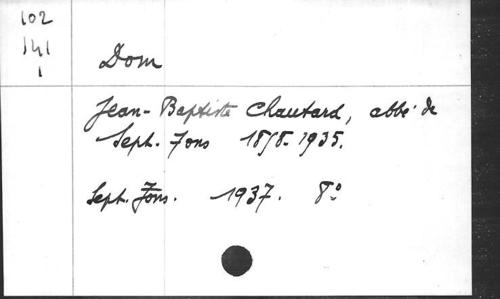 102
141
1
Dom
Jean-Baptiste Chautard, abbé de
Sept-Fons 1858-1935.
Sept-Fons. 1937. 8°